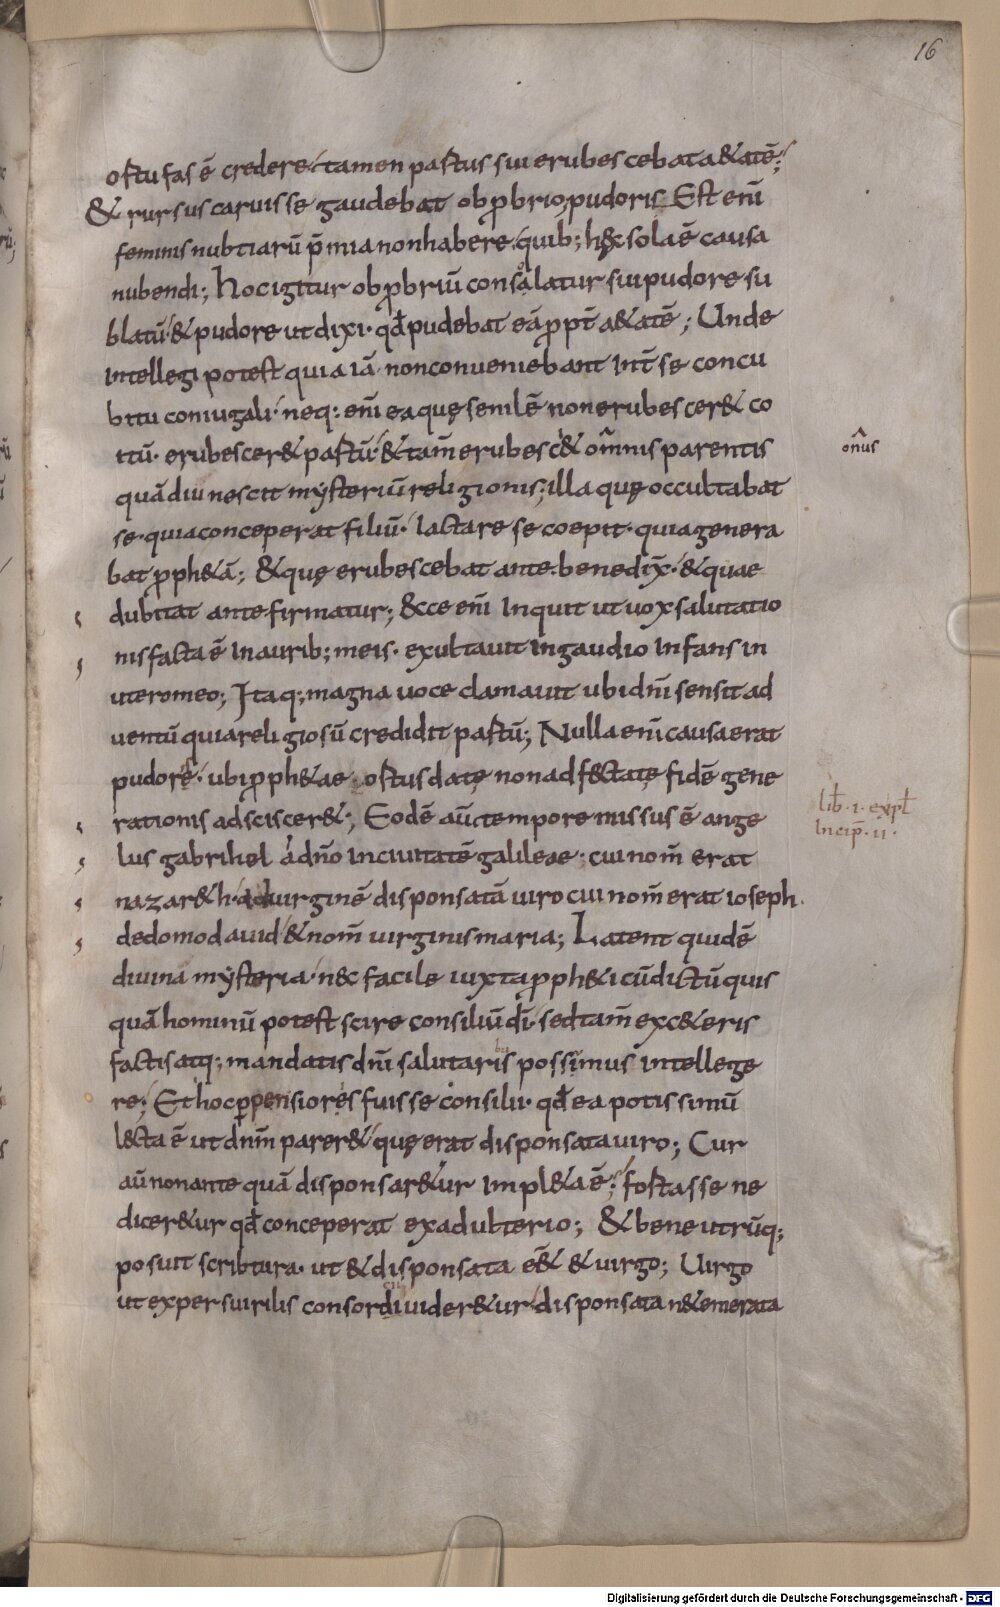 16
oftu fas ē credere tamen paſtus sui erubescebat a&atē;
& rursus caruisse gaudebat obp̄brio, pudoris Eſt enī
feminis nubtiarū p̄mia non habere quib; hęc sola ē causa
nubendi; hoc igitur obp̄briū consolatur sui pudore su
blatū & pudore ut dixi· qđ pudebat eā ppt̄ a&atē; Unde
intellegi poteſt quia iā non conueniebant int̄ se concu
bitu coniugali· neq: enī ea quę senilē non erubescer& co
itū· erubescer& paſtū· & tam̄ erubesc& om̄nis parentis
onus
quādiu nescit myſteriū religionis; illa quę occultabat
se· quia conceperat filiū· lactare se coepit· quia genera
bat pph&ā; & quę erubescebat ante· benedix̄· & quae
dubitat ante· firmatur; &cce enī inquit ut uox salutatio
nis facta ē in aurib; meis· exultauit in gaudio infans in
utero meo; Itaq; magna uoce clamauit ubi dn̄i sensit ad
uentū quia religiosū credidit paſtū; Nulla enī causa erat
pudore· ubi pph&ae· oſtus datę non adf&ctatę fidē gene
rationis adsciscer&; Eodē aū tempore missus ē ange
lib̄·i·expl̄
Incip̄·ii·
lus gabrihel a dn̄o in ciuitatē galileae· cui nom̄ erat
nazar&h· ad uirginē disponsatā uiro cui nom̄ erat ioseph·
de domo dauid & nom̄ uirginis maria; Latent quidē
diuina myſteria· nec facile iuxta pph&icū dictū quis
quā hominū poteſt scire consiliū dī· sed tam̄ exc&eris
factis atq; mandatis dn̄i salutaris possimus intellege
re; Et hoc p̱pensiores fuisse consilii· qđ ea potissimū
l&cta ē ut dn̄m parer& quę erat disponsata uiro; Cur
aū non ante quā disponsar&ur impl&a ē; foſtasse ne
dicer&ur qđ conceperat ex adulterio; & bene utrūq;
posuit scribtura· ut & disponsata e&́ & uirgo; Uirgo
ut expers uirilis consorcii uider&ur disponsata n& emerata
Digitalisierung gefördert durch die Deutsche Forschungsgemeinschaft - DFG